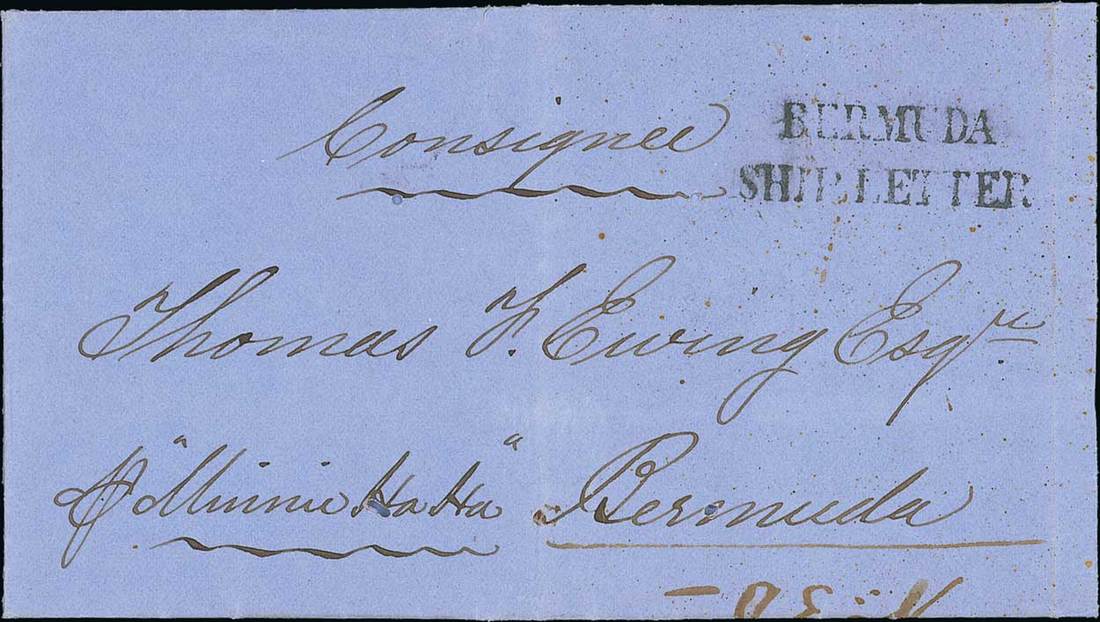 Consignee
BERMUDA
SHIP LETTER
Thomas F. Ewing Esqre
p "Minnie Ha Ha"
Bermuda